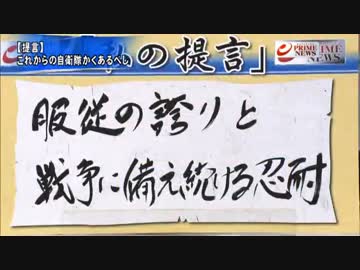 【提言】
これからの自衛隊かくあるべし
の提言」
PRIME NEWS
服従の誇りと
戦争に備え続ける忍耐